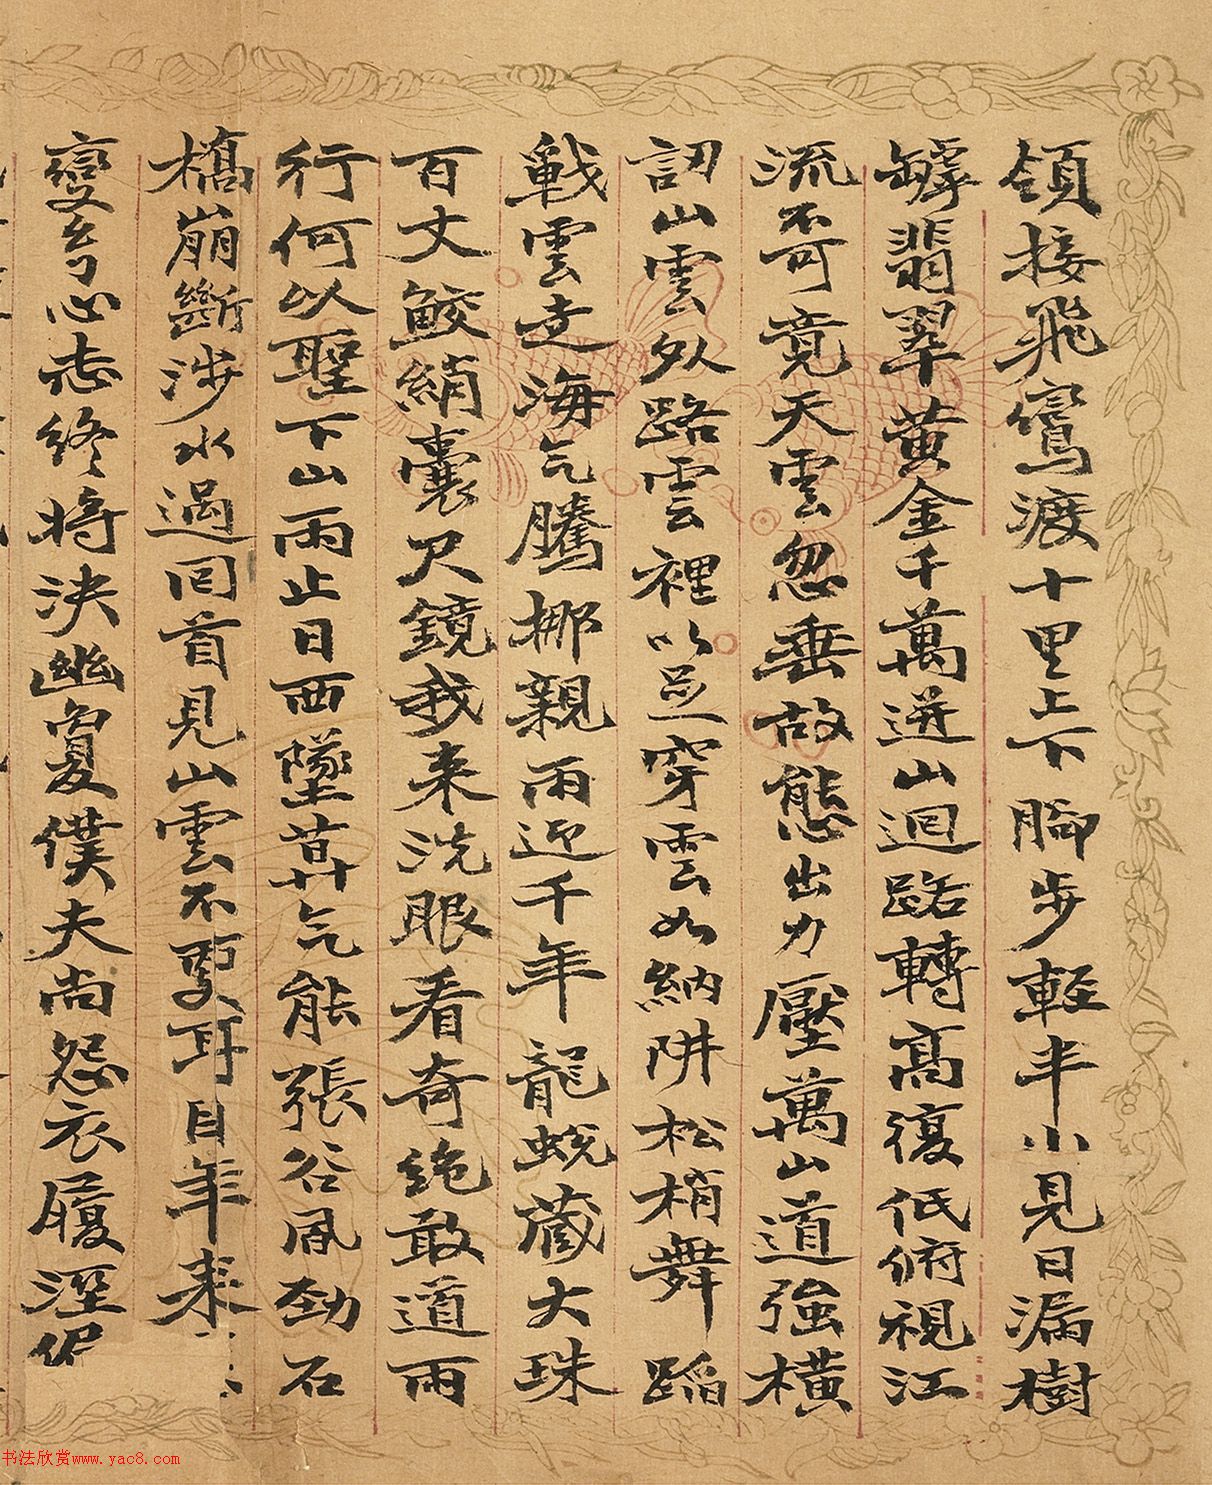 領接飛鸞渡十里上下腳步輕半小見日漏樹
罅翡翠黃金千萬迸山迴路轉高復低俯視江
流奇竟天雲忽垂故態出力壓萬山道強橫
認山雲外路雲裡以足穿雲如納阱松梢舞蹈
戰雲走海气騰挪親雨迎千年龍蛻藏大珠
百丈鮫綃囊尺鏡我来洗眼看奇絶敢道雨
行何以聖下山雨止日西墜草气能張谷風勁石
橋崩斷涉水過回首見山雲不耳目年来
變幻心志終將決幽夐僕夫尚怨衣履溼
书法欣赏www.yac8.com